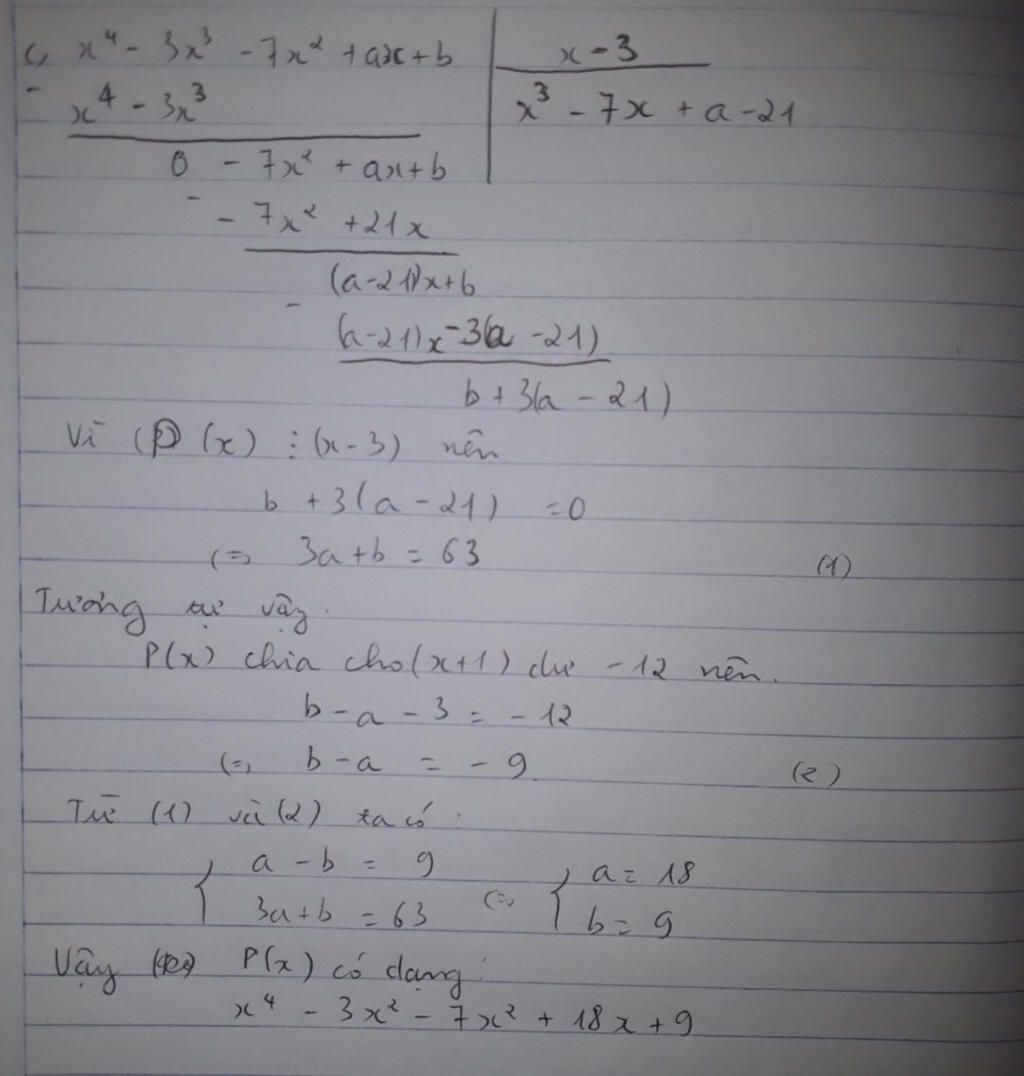 c, x⁴ - 3x³ - 7x² + ax + b | x - 3
- x⁴ - 3x³ | x³ - 7x + a - 21
0 - 7x² + ax + b
- - 7x² + 21x
(a-21)x + b
- (a-21)x - 3(a - 21)
b + 3(a - 21)
Vì (P) (x) ⋮ (x - 3) nên
b + 3(a - 21) = 0
(=) 3a + b = 63 (1)
Tương tự vậy.
P(x) chia cho (x+1) dư -12 nên.
b - a - 3 = - 12
(=) b - a = - 9. (2)
Từ (1) và (2) ta có.
{ a - b = 9 (=) { a = 18
3a + b = 63 b = 9
Vậy P(x) có dạng:
x⁴ - 3x² - 7x² + 18x + 9